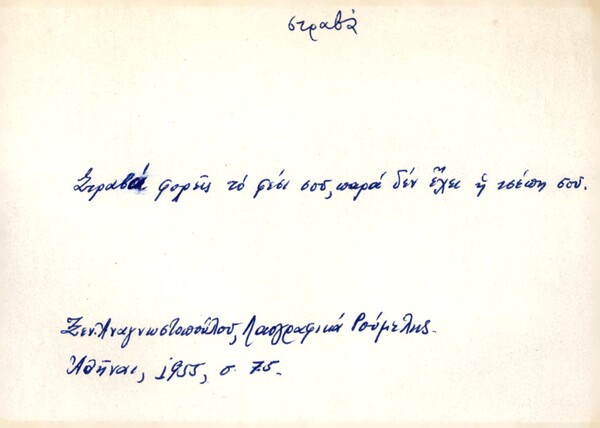 στραβά
Στραβά φορεῖς τό φέσι σου, παρά δέν ἔχει ἡ τσέπη σου.
Ξεν. Ἀναγνωστοπούλου, Λαογραφικά Ρούμελης.
Ἀθῆναι, 1955, σ. 75.